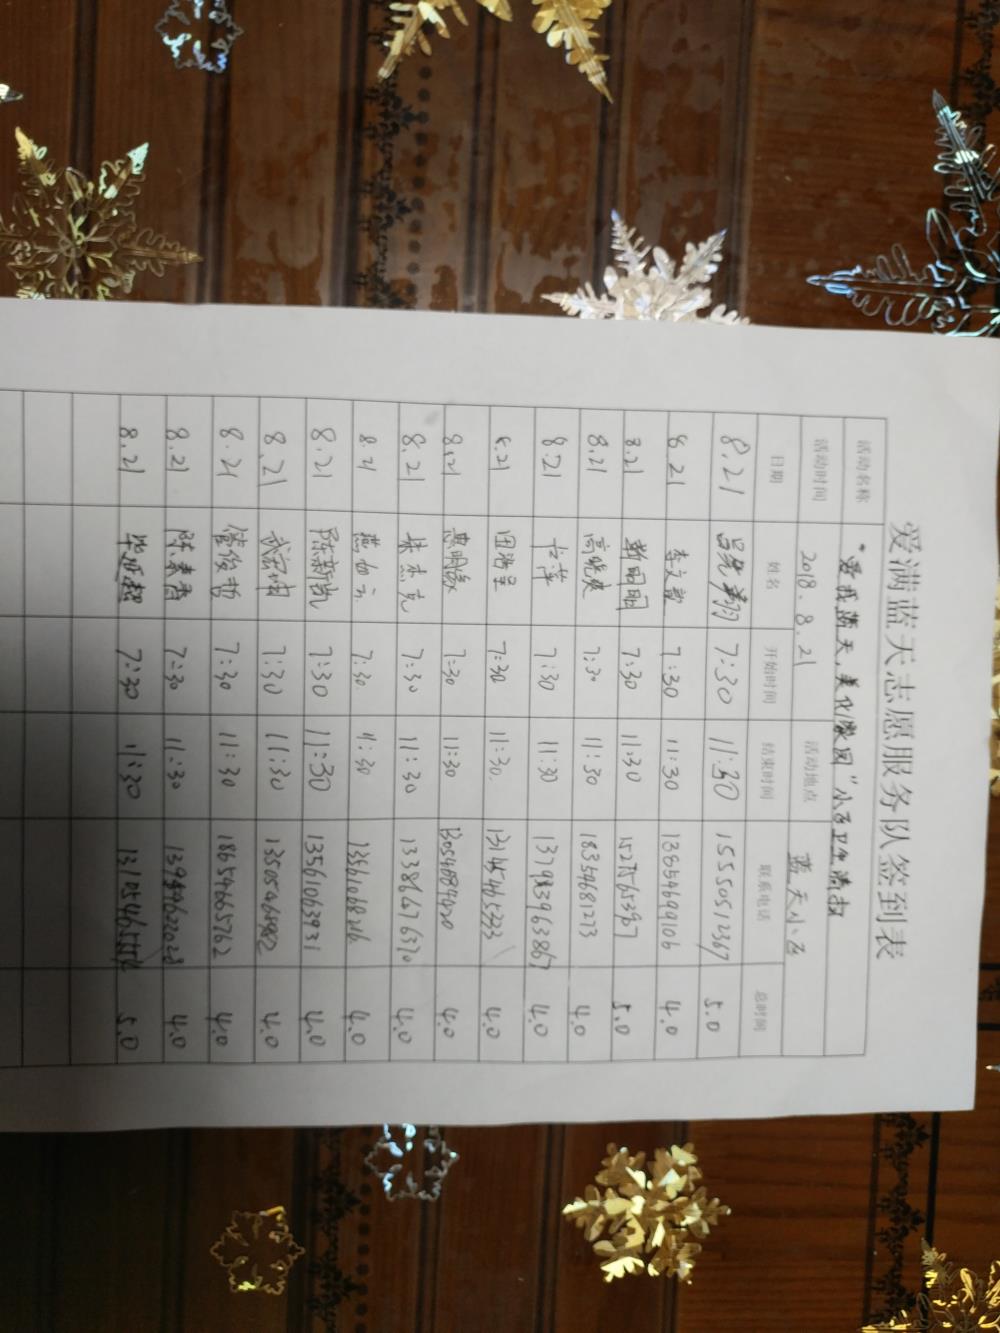 爱满蓝天志愿服务队签到表
活动名称 "爱我蓝天,美化家园"小区卫生清扫
活动时间 2018.8.21 活动地点 蓝天小区
日期 姓名 开始时间 结束时间 联系电话 总时间
8.21 7:30 11:30 15550512367 5.0
8.21 李文韶 7:30 11:30 13654699106 4.0
8.21 靳明明 7:30 11:30 15275565567 5.0
8.21 高晓爽 7:30 11:30 18354681273 4.0
8.21 卞萍 7:30 11:30 137933963867 4.0
8.21 田浩呈 7:30 11:30 4.0
8.21 惠明缘 7:30 11:30 4.0
8.21 杰克 7:30 11:30 13386676370 4.0
8.21 燕如云 7:30 11:30 4.0
8.21 陈新凯 7:30 11:30 13561063931 4.0
8.21 武宏坤 7:30 11:30 4.0
8.21 管俊哲 7:30 11:30 18654665762 4.0
8.21 陈春香 7:30 11:30 4.0
8.21 毕延超 7:30 11:30 5.0